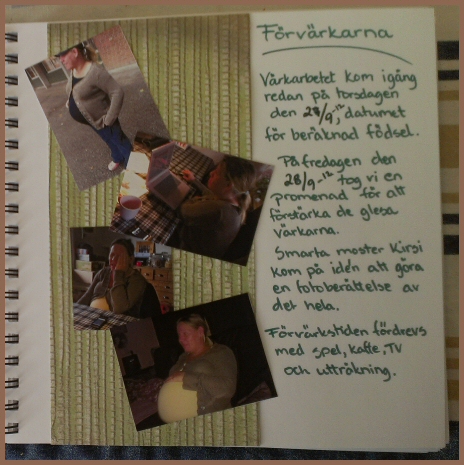 Förvärkarna
Värkarbetet kom igång
redan på torsdagen
den 28/9-12, datumet
för beräknad födsel.
På fredagen den
28/9-12 tog vi en
promenad för att
förstärka de glesa
värkarna.
Smarta moster Kirsi
kom på idén att göra
en fotoberättelse av
det hela.
Förvärkstiden fördrevs
med spel, kaffe, TV
och uttråkning.